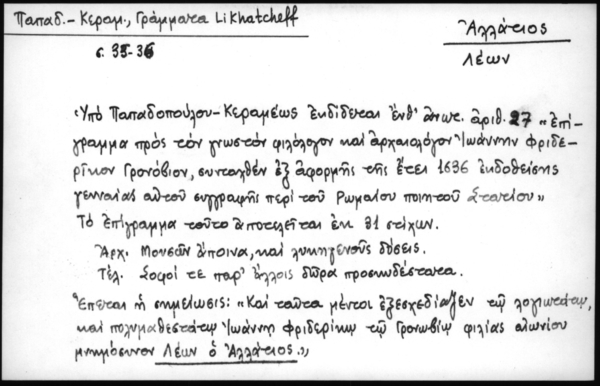 Παπαδ.-Κεραμ., Γράμματα Likhatcheff
Ἀλλάτιος
σ. 35-36
Λέων
Ὑπὸ Παπαδοπούλου-Κεραμέως ἐκδίδεται ὑπ' ἀριθ. 27 «Ἐπί-
γραμμα πρὸς τὸν γνωστὸν φιλόλογον καὶ ἀρχαιολόγον Ἰωάννην Φριδε-
ρῖκον Γρονόβιον, συνταχθὲν ἐξ ἀφορμῆς τῆς ἔτει 1636 ἐκδοθείσης
γενναίας αὐτοῦ συγγραφῆς περὶ τοῦ Ῥωμαίου ποιητοῦ Στατίου»
Τὸ ἐπίγραμμα τοῦτο ἀποτελεῖται ἐκ 31 στίχων.
Ἀρχ. Μουσῶν ἄποινα, καὶ λυκηγενοῦς δόσεις.
Τέλ. Σοφοί τε παρ' ἄλλοις δῶρα προσηνέστατα.
Ἕπεται ἡ σημείωσις: «Καὶ ταῦτα μέντοι ἐξεσχεδίαζεν τῷ λογιωτάτῳ,
καὶ πολυμαθεστάτῳ Ἰωάννῃ Φριδερίκῳ τῷ Γρονωβίῳ φιλίας αἰωνίου
μνημόσυνον Λέων ὁ Ἀλλάτιος.»